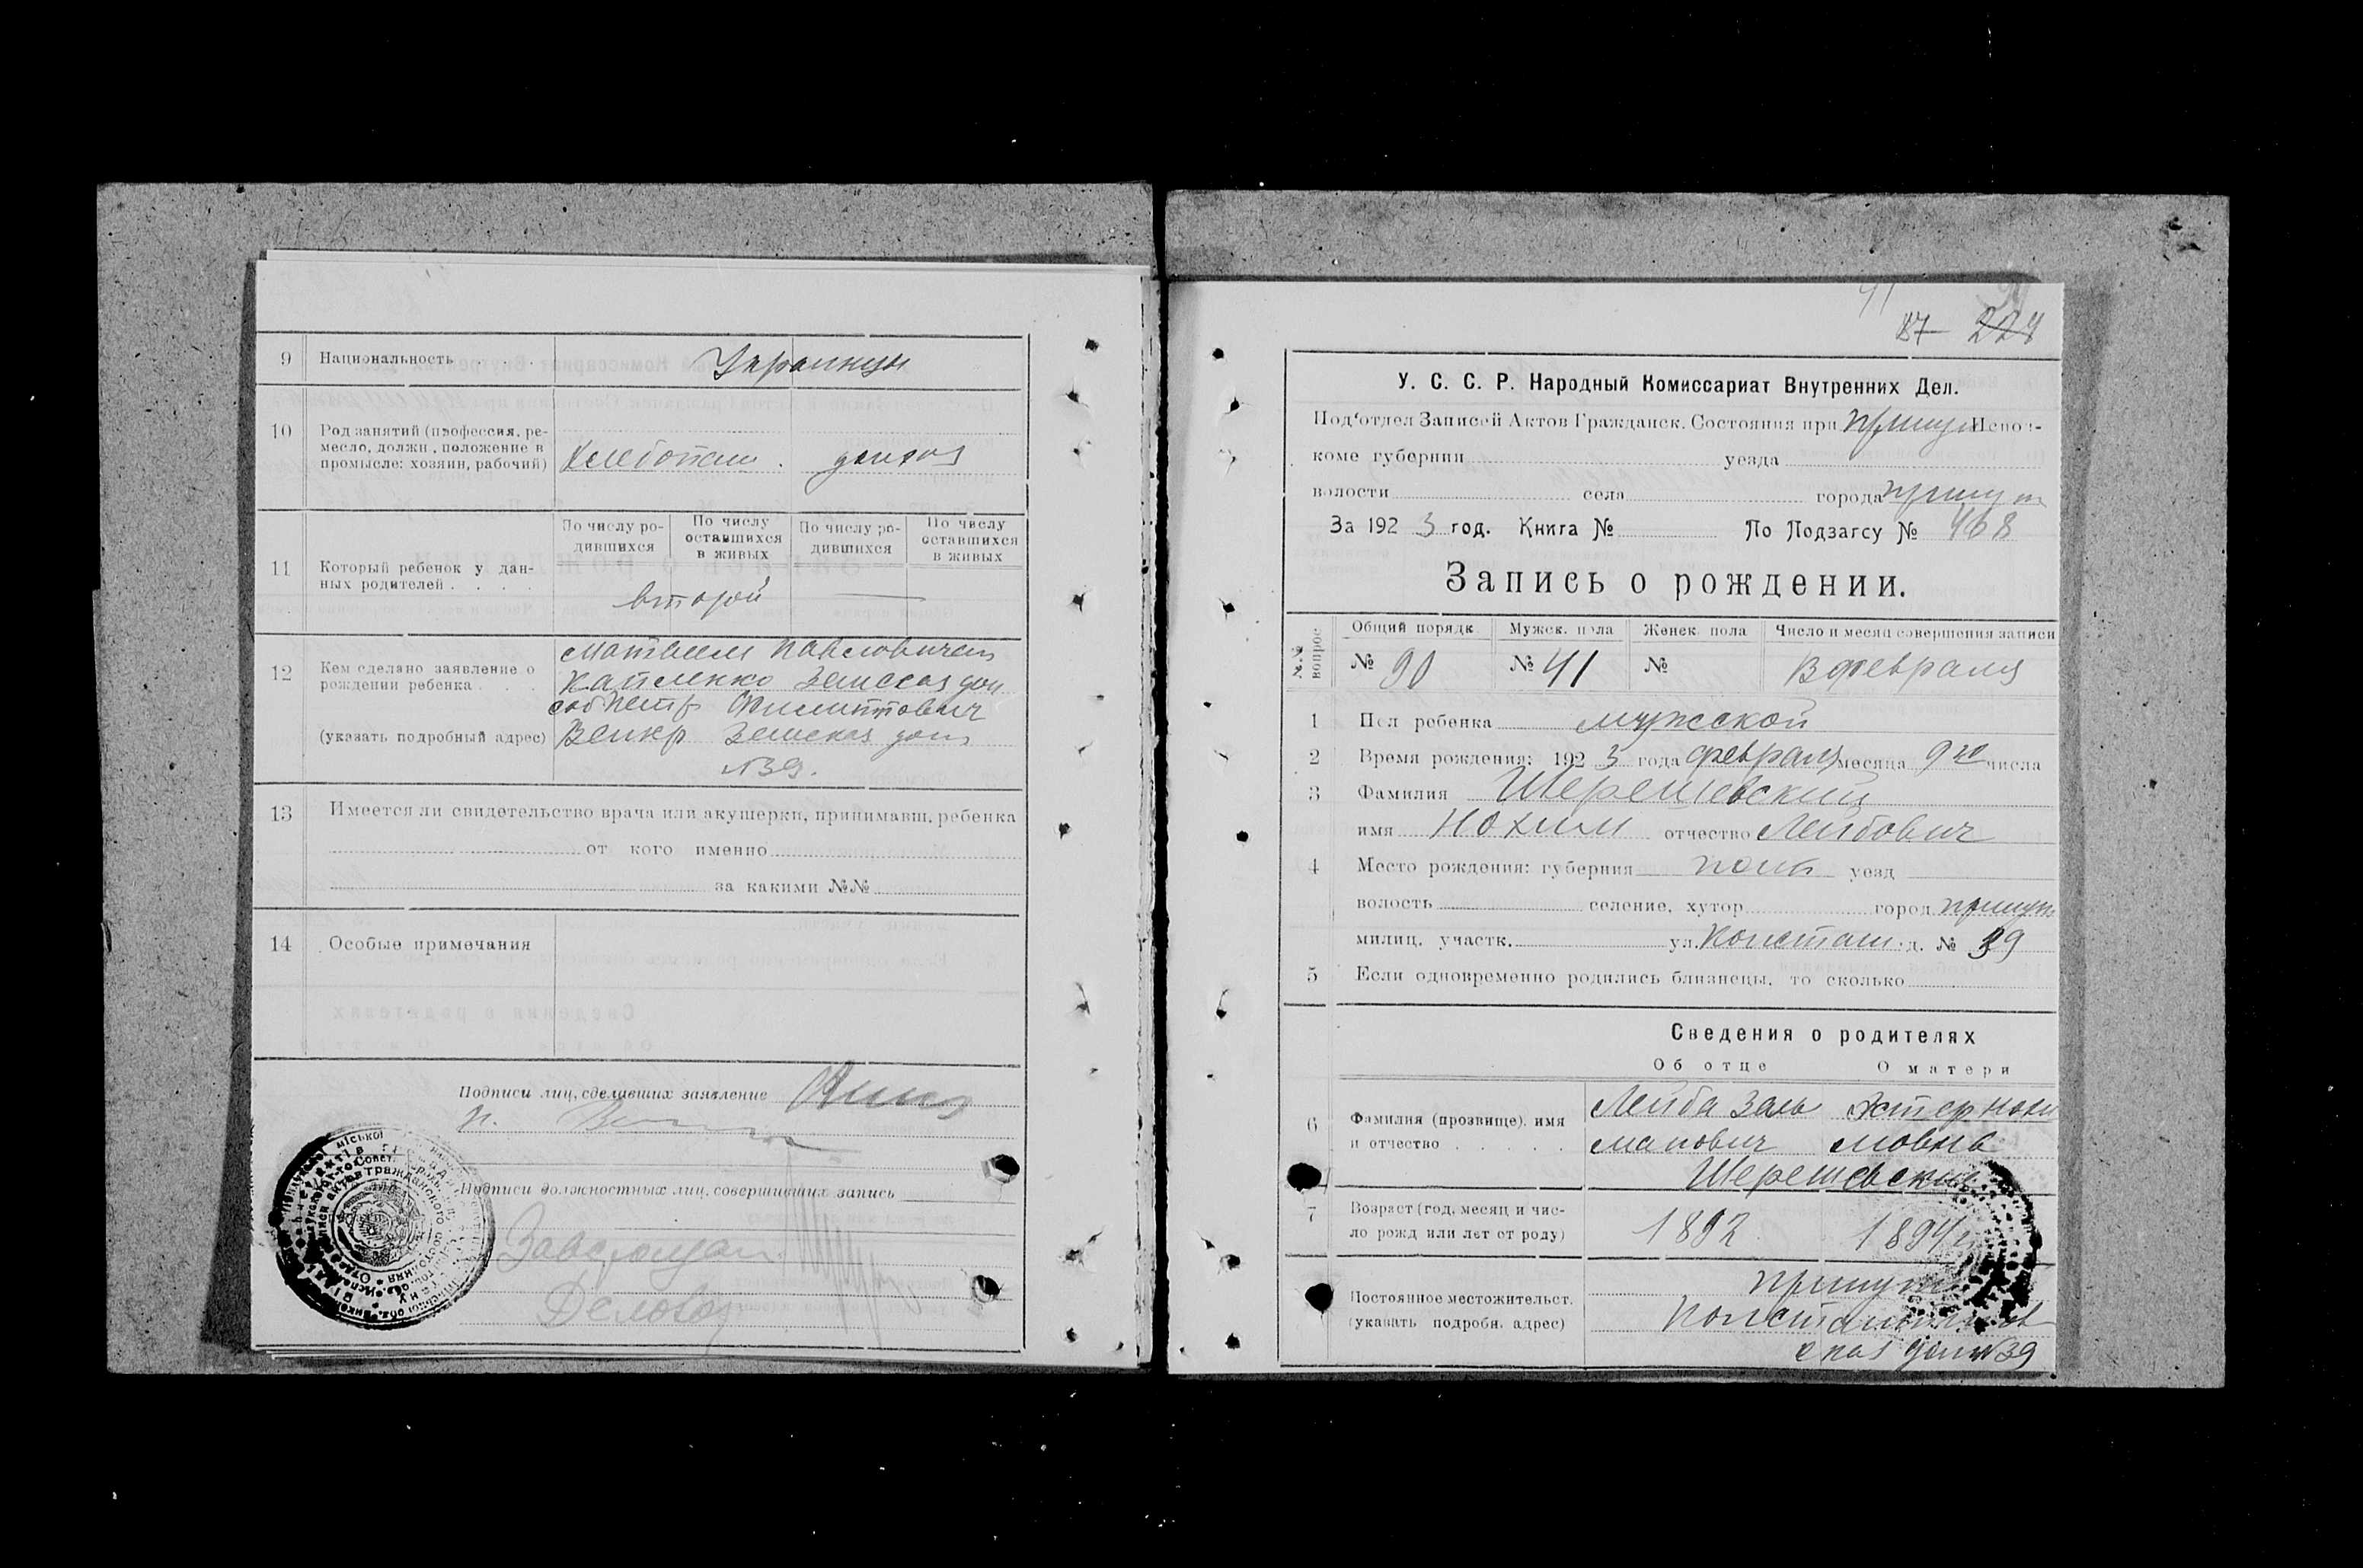 9 Национальность Украинцы
10 Род занятий (профессия, ре-
месло, должн., положение в
промысле: хозяин, рабочий) Хлебопаш. домхоз
По числу ро- По числу По числу ро- По числу
дившихся оставшихся дившихся оставшихся
в живых в живых
11 Который ребенок у дан-
ных родителей второй
Матвеем Павловичем
12 Кем сделано заявление о
рождении ребенка Земская дом
Петр Филиппович
(указать подробный адрес) Земская дом
№39.
13 Имеется ли свидетельство врача или акушерки, принимавш. ребенка
от кого именно
за какими №№
14 Особые примечания
Подписи лиц, сделавших заявление
Подписи должностных лиц, совершивших запись
Заведующ.
Деловод
41
87 224
У. С. С. Р. Народный Комиссариат Внутренних Дел.
Под'отдел Записей Актов Гражданск. Состояния при Прилук Испол-
коме губернии уезда
волости села города Прилук
За 1923 год. Книга № По Подзагсу № 468
Запись о рождении.
№№ вопрос. Общий порядк. Мужск. пола Женск. пола Число и месяц совершения записи
№ 90 № 41 № февраля
1 Пол ребенка мужской
2 Время рождения: 1923 года февраля месяца 9го числа
3 Фамилия Шерешевский
имя Нохим отчество Лейбович
4 Место рождения: губерния Полт уезд
волость селение, хутор город Прилук
милиц. участк. ул. Констант. д. № 39
5 Если одновременно родились близнецы, то сколько
Сведения о родителях
Об отце О матери
6 Фамилия (прозвище), имя Лейба Заль Эстер Нохи
и отчество манович мовна
Шерешевские
7 Возраст (год, месяц и чис-
ло рожд или лет от роду) 1892 1894
Прилук
Постоянное местожительст.
(указать подробн. адрес) Константинов
ская дом №39